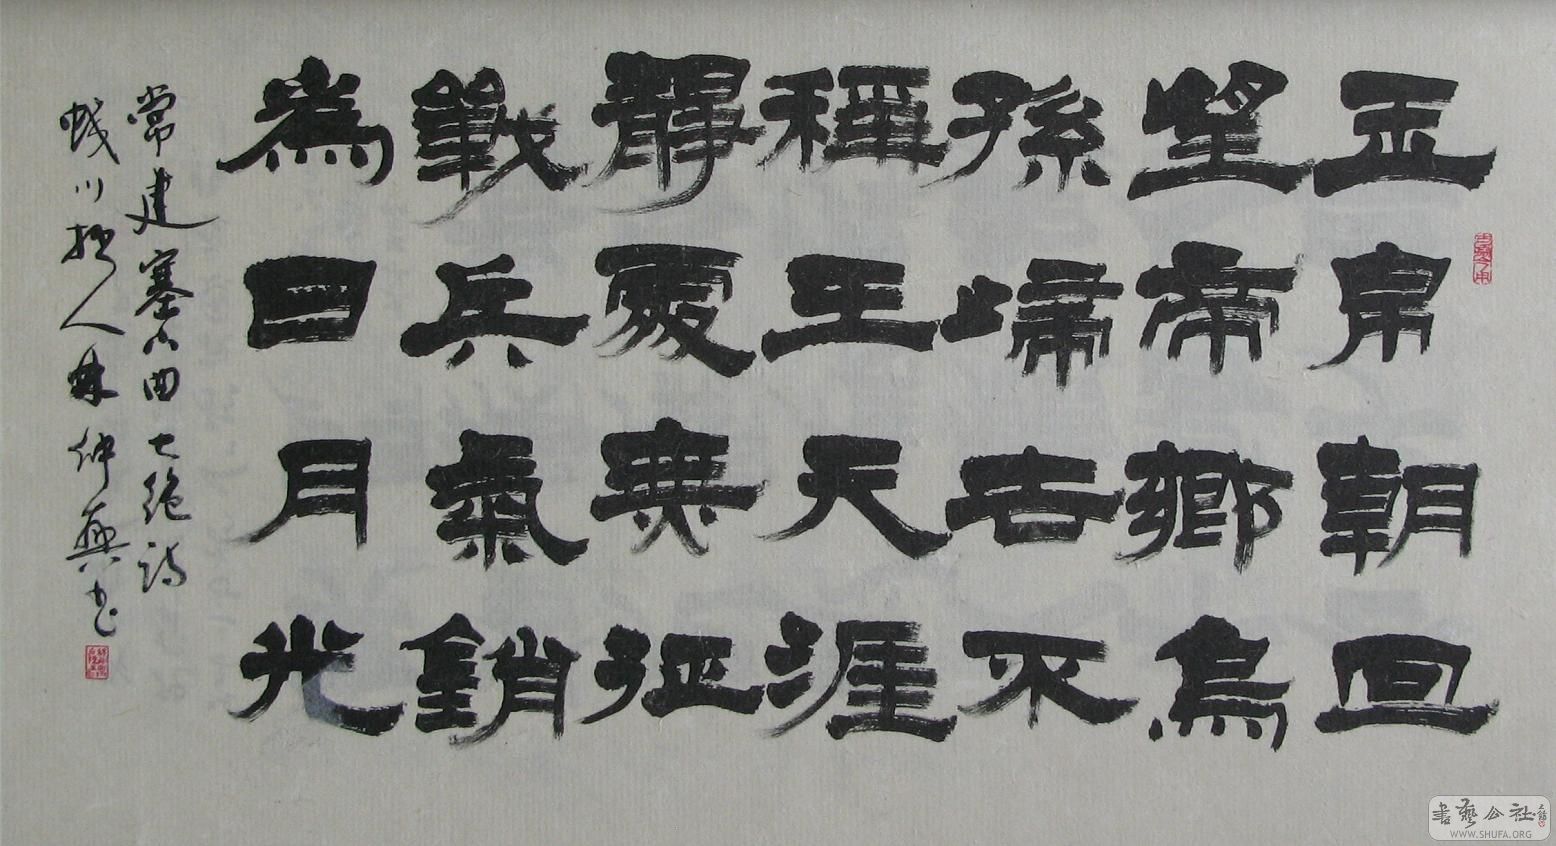 玉帛朝回
望帝鄉烏
孫歸去不
稱王天涯
靜處無征
戰兵氣銷
為日月光
常建塞下曲七絕詩
川拙人林仲興書
書藝公社
WWW.SHUFA.ORG